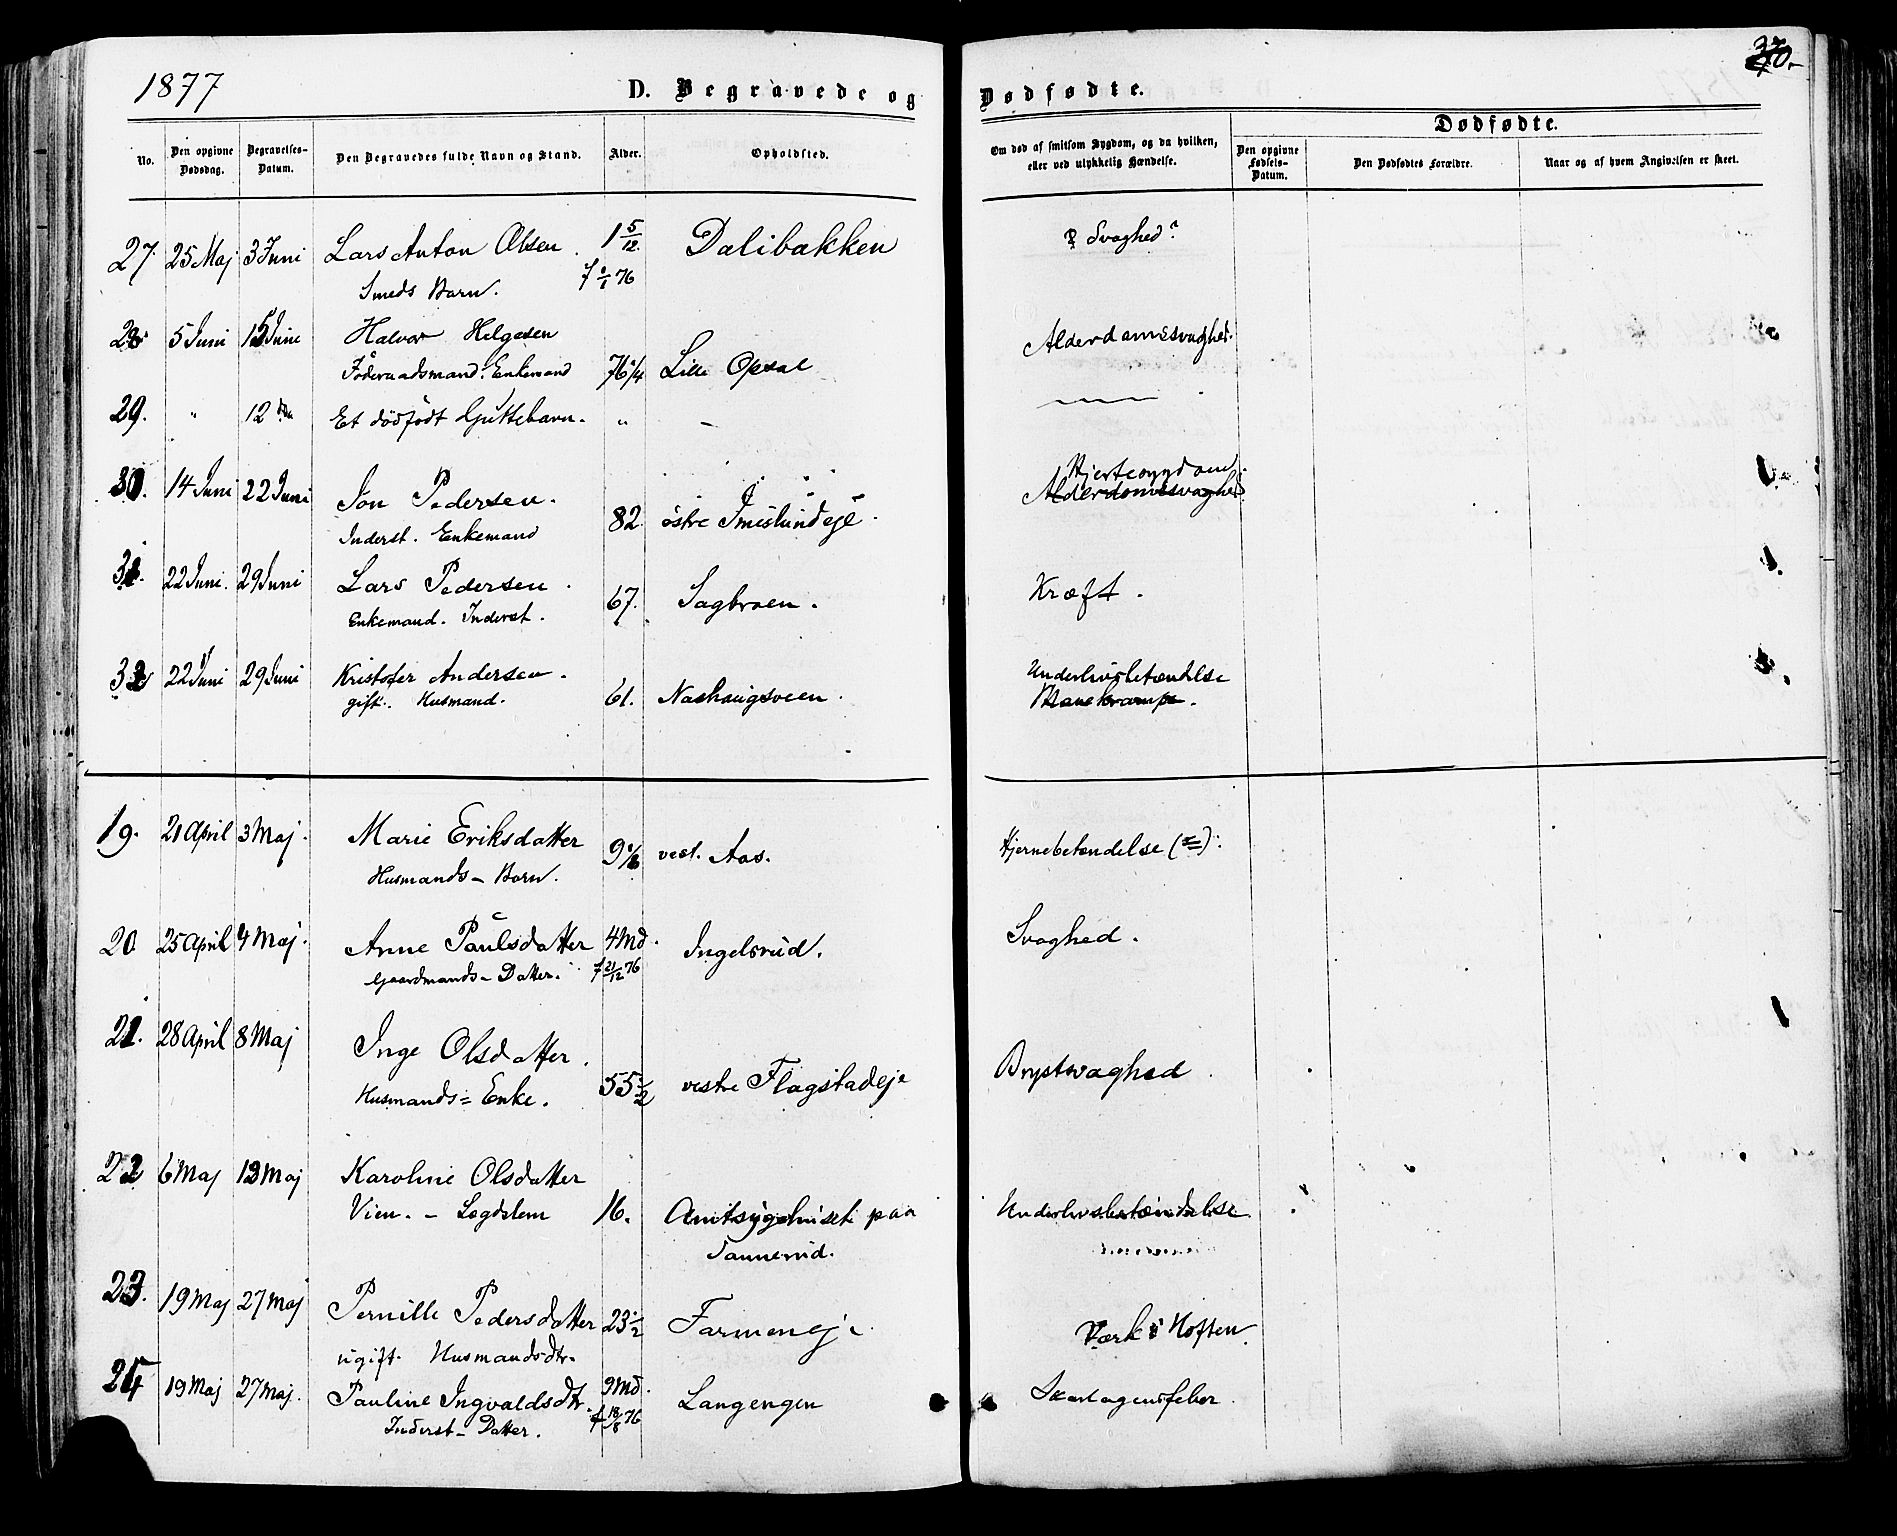 1877 D. Begravede og Dødfødte. 370.
Dødfødte.
No. Den opgivne Dødsdag. Begravelses-Datum. Den Begravedes fulde Navn og Stand. Alder. Opholdsted. Om død af smitsom Sygdom, og da hvilken, eller ved ulykkelig Hændelse. Den opgivne Fødsels-Datum. Den Dødfødtes Forældre. Naar og af hvem Angivelsen er skeet.
27. 25 Maj 3 Juni Lars Anton Olsen 1 5/12 Dalibakken Svaghed?
Smeds Barn. 76
28 5 Juni 15 Juni Halvor Helgesen Alderdomssvaghed.
Föderaadsmand. Enkemand 76 1/4 Lille Opsal
29. " 12 Et dödfödt Guttebarn. " -
30. 14 Juni 22 Juni Jon Pedersen. Hjertesygdom.
Inderst. Enkemand 82 østre Imeslundeje. Alderdomssvaghed
31. 22 Juni. 29 Juni Lars Pedersen. 67. Sagbroen. Kræft.
Enkemand. Inderst.
32 22 Juni 29 Juni Kristofer Andersen. Underlivsbetændelse
gift. Husmand. 61. Nashaugsveen.
19. 21 April 3 Maj. Marie Eriksdatter 9 1/8 vest. Aas. Hjernebetændelse
Husmands-Barn.
20 25 April 4 Maj. Anne Paulsdatter 4 Md. Ingelsrud. Svaghed.
Gaardmands-Datter. f 21/12 76
21. 28 April 8 Maj Inge Olsdatter.
Husmands-Enke. 55 1/2 vestre Flagstadeje Brystsvaghed
22 6 Maj 13 Maj Karoline Olsdatter
Vien. - Lægdslem 16. Amtsygehuset paa Underlivsbetændelse
Sannerud.
23. 19 Maj 27 Maj Pernille Pedersdatter 23 1/2 Farmeneje Værk i Hoften
ugift. Husmandsdtr.
24 19 Maj 27 Maj. Pauline Ingvaldsdtr. 9 Md. Langengen Skarlagensfeber
Inderst-Datter. f 18/8 76